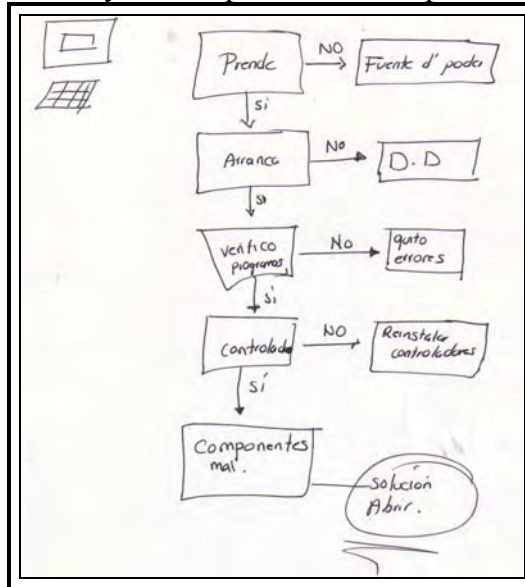 Prende
NO
Fuente d' poder
si
Arranca
No
D.D
si
Verifico
programas
No
quito
errores
si
Controlado
NO
Reinstalar
controladores
SÍ
Componentes
mal.
Solución
Abrir.